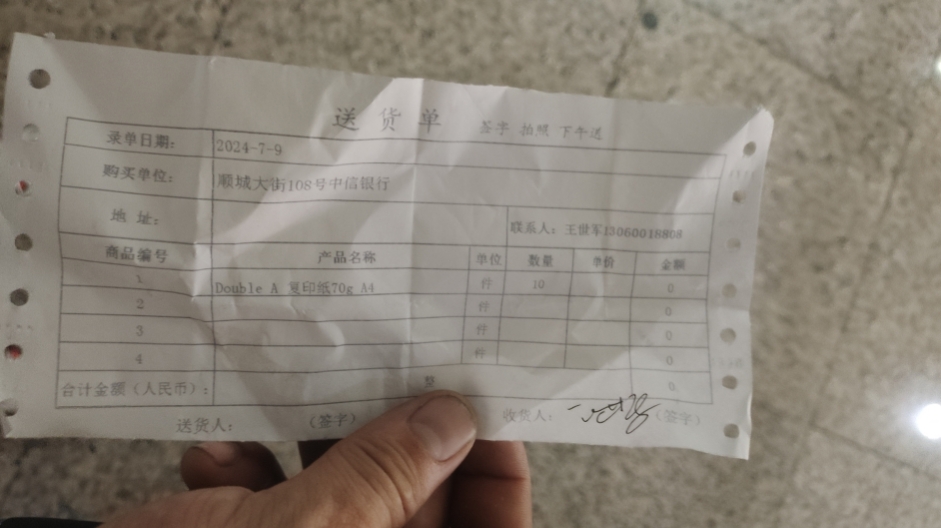 送货单 签字 拍照 下午送
录单日期: 2024-7-9
购买单位: 顺城大街108号中信银行
地 址: 联系人: 王世军13060018808
商品编号 产品名称 单位 数量 单价 金额
1 Double A 复印纸70g A4 件 10 0
2 件 0
3 件 0
4 件 0
合计金额(人民币): 整 0
送货人: (签字) 收货人: (签字)